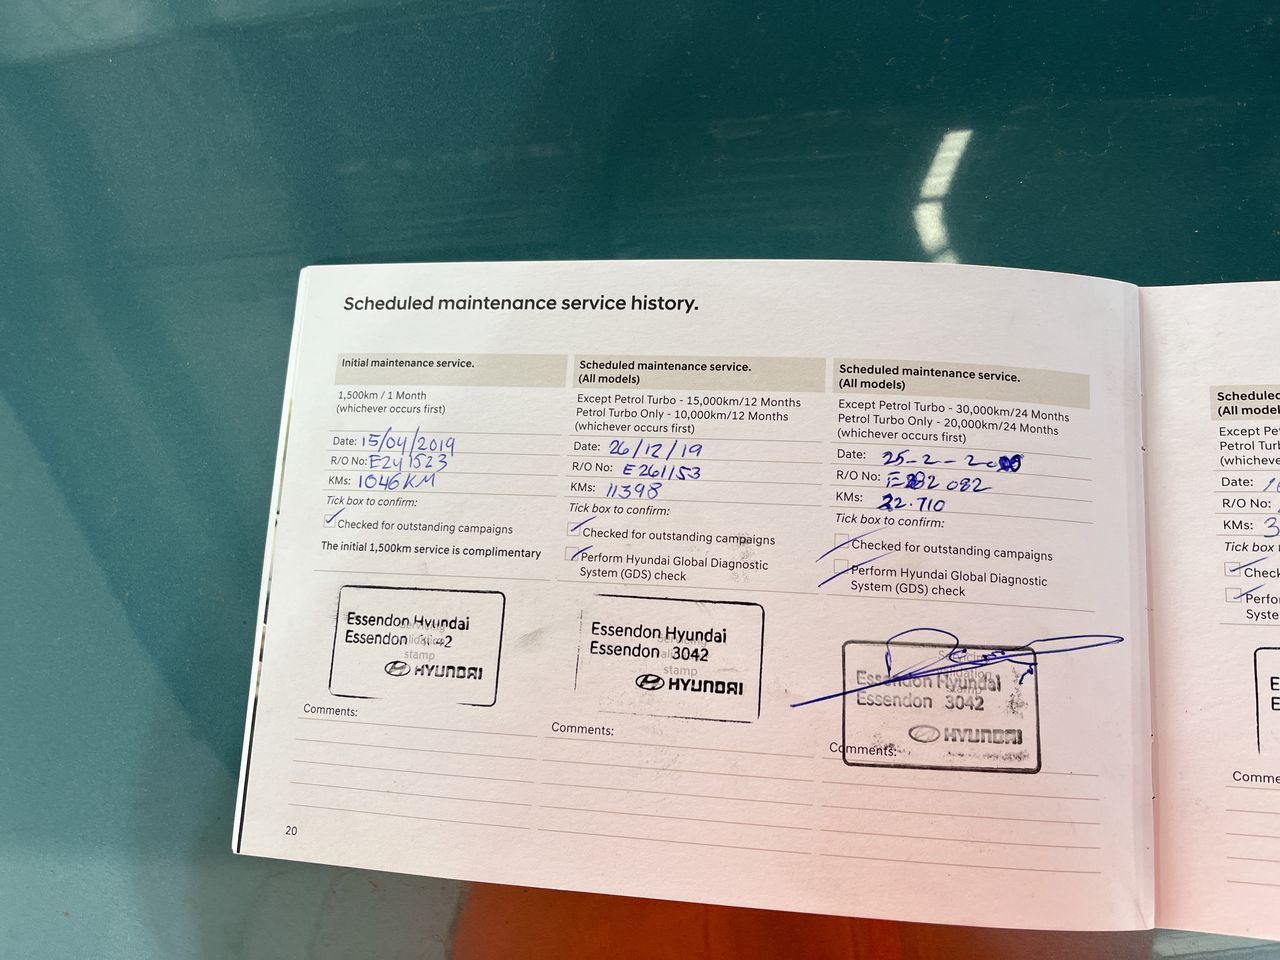 Scheduled maintenance service history.
Initial maintenance service.
1,500km / 1 Month
(whichever occurs first)
Date: 15/04/2019
R/O No: E241523
KMs: 1046KM
Tick box to confirm:
Checked for outstanding campaigns
The initial 1,500km service is complimentary
Servicing
validation
stamp
Essendon Hyundai
Essendon 3042
HYUNDAI
Comments:
20
Scheduled maintenance service.
(All models)
Except Petrol Turbo - 15,000km/12 Months
Petrol Turbo Only - 10,000km/12 Months
(whichever occurs first)
Date: 26/12/19
R/O No: E261153
KMs: 11398
Tick box to confirm:
Checked for outstanding campaigns
Perform Hyundai Global Diagnostic
System (GDS) check
Servicing
validation
stamp
Essendon Hyundai
Essendon 3042
HYUNDAI
Comments:
Scheduled maintenance service.
(All models)
Except Petrol Turbo - 30,000km/24 Months
Petrol Turbo Only - 20,000km/24 Months
(whichever occurs first)
Date: 25-2-
R/O No:
KMs: 22.710
Tick box to confirm:
Checked for outstanding campaigns
Perform Hyundai Global Diagnostic
System (GDS) check
Servicing
validation
stamp
Essendon Hyundai
Essendon 3042
HYUNDAI
Comments:
(All
Date:
R/O No:
KMs: 3
Tick box